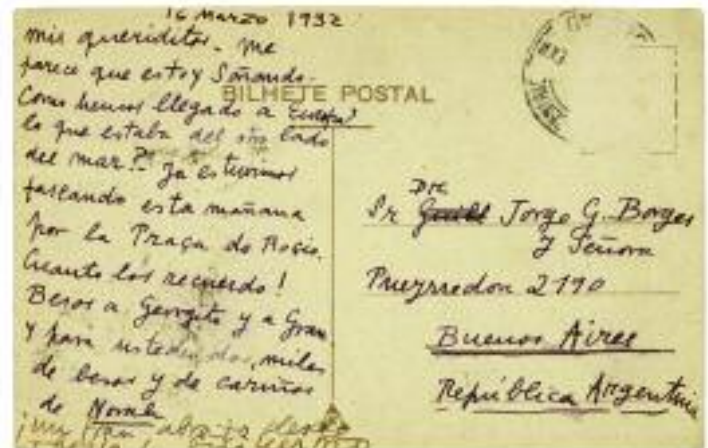 16 Marzo 1932
mis queriditos. Me
parece que estoy Soñando.
Como hemos llegado a Europa?
lo que estaba del otro lado
del mar?! Ya estuvimos
paseando esta mañana
por la Praça do Rocio.
Cuanto los recuerdo!
Besos a Georgito y a Gran
y para ustedes dos, miles
de besos y de cariños
de Norah
¡un gran abrazo desde
BILHETE POSTAL
Dr.
Sr Jorge G. Borges
y Señora
Pueyrredon 2190
Buenos Aires
República Argentina